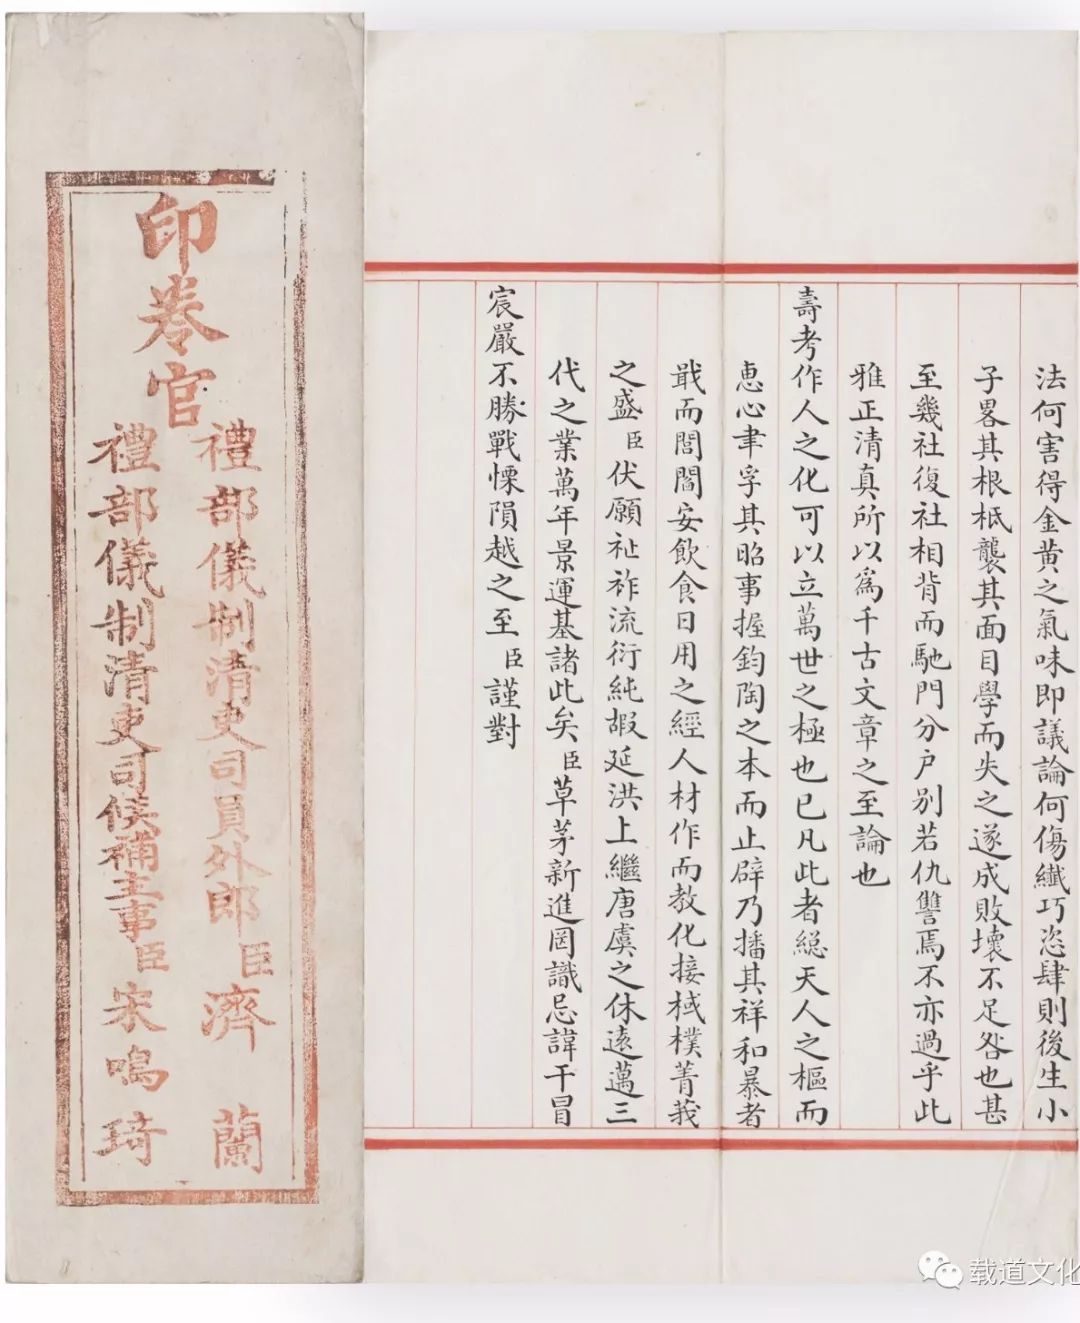 法何害得金黃之氣味即議論何傷纎巧恣肆則後生小
子畧其根柢襲其面目學而失之遂成敗壞不足咎也甚
至幾社復社相背而馳門分户别若仇讐焉不亦過乎此
雅正清真所以為千古文章之至論也
壽考作人之化可以立萬世之極也已凡此者緫天人之樞而
惠心聿孚其昭事握鈞陶之本而止辟乃播其祥和暴者
戢而閭閻安飲食日用之經人材作而教化接棫樸菁莪
之盛臣伏願祉祚流衍純嘏延洪上繼唐虞之休遠邁三
代之業萬年景運基諸此矣臣草茅新進罔識忌諱干冒
宸嚴不勝戰慄隕越之至臣謹對
印卷官
禮部儀制清吏司員外郎臣濟蘭
禮部儀制清吏司候補主事臣宋鳴琦
载道文化